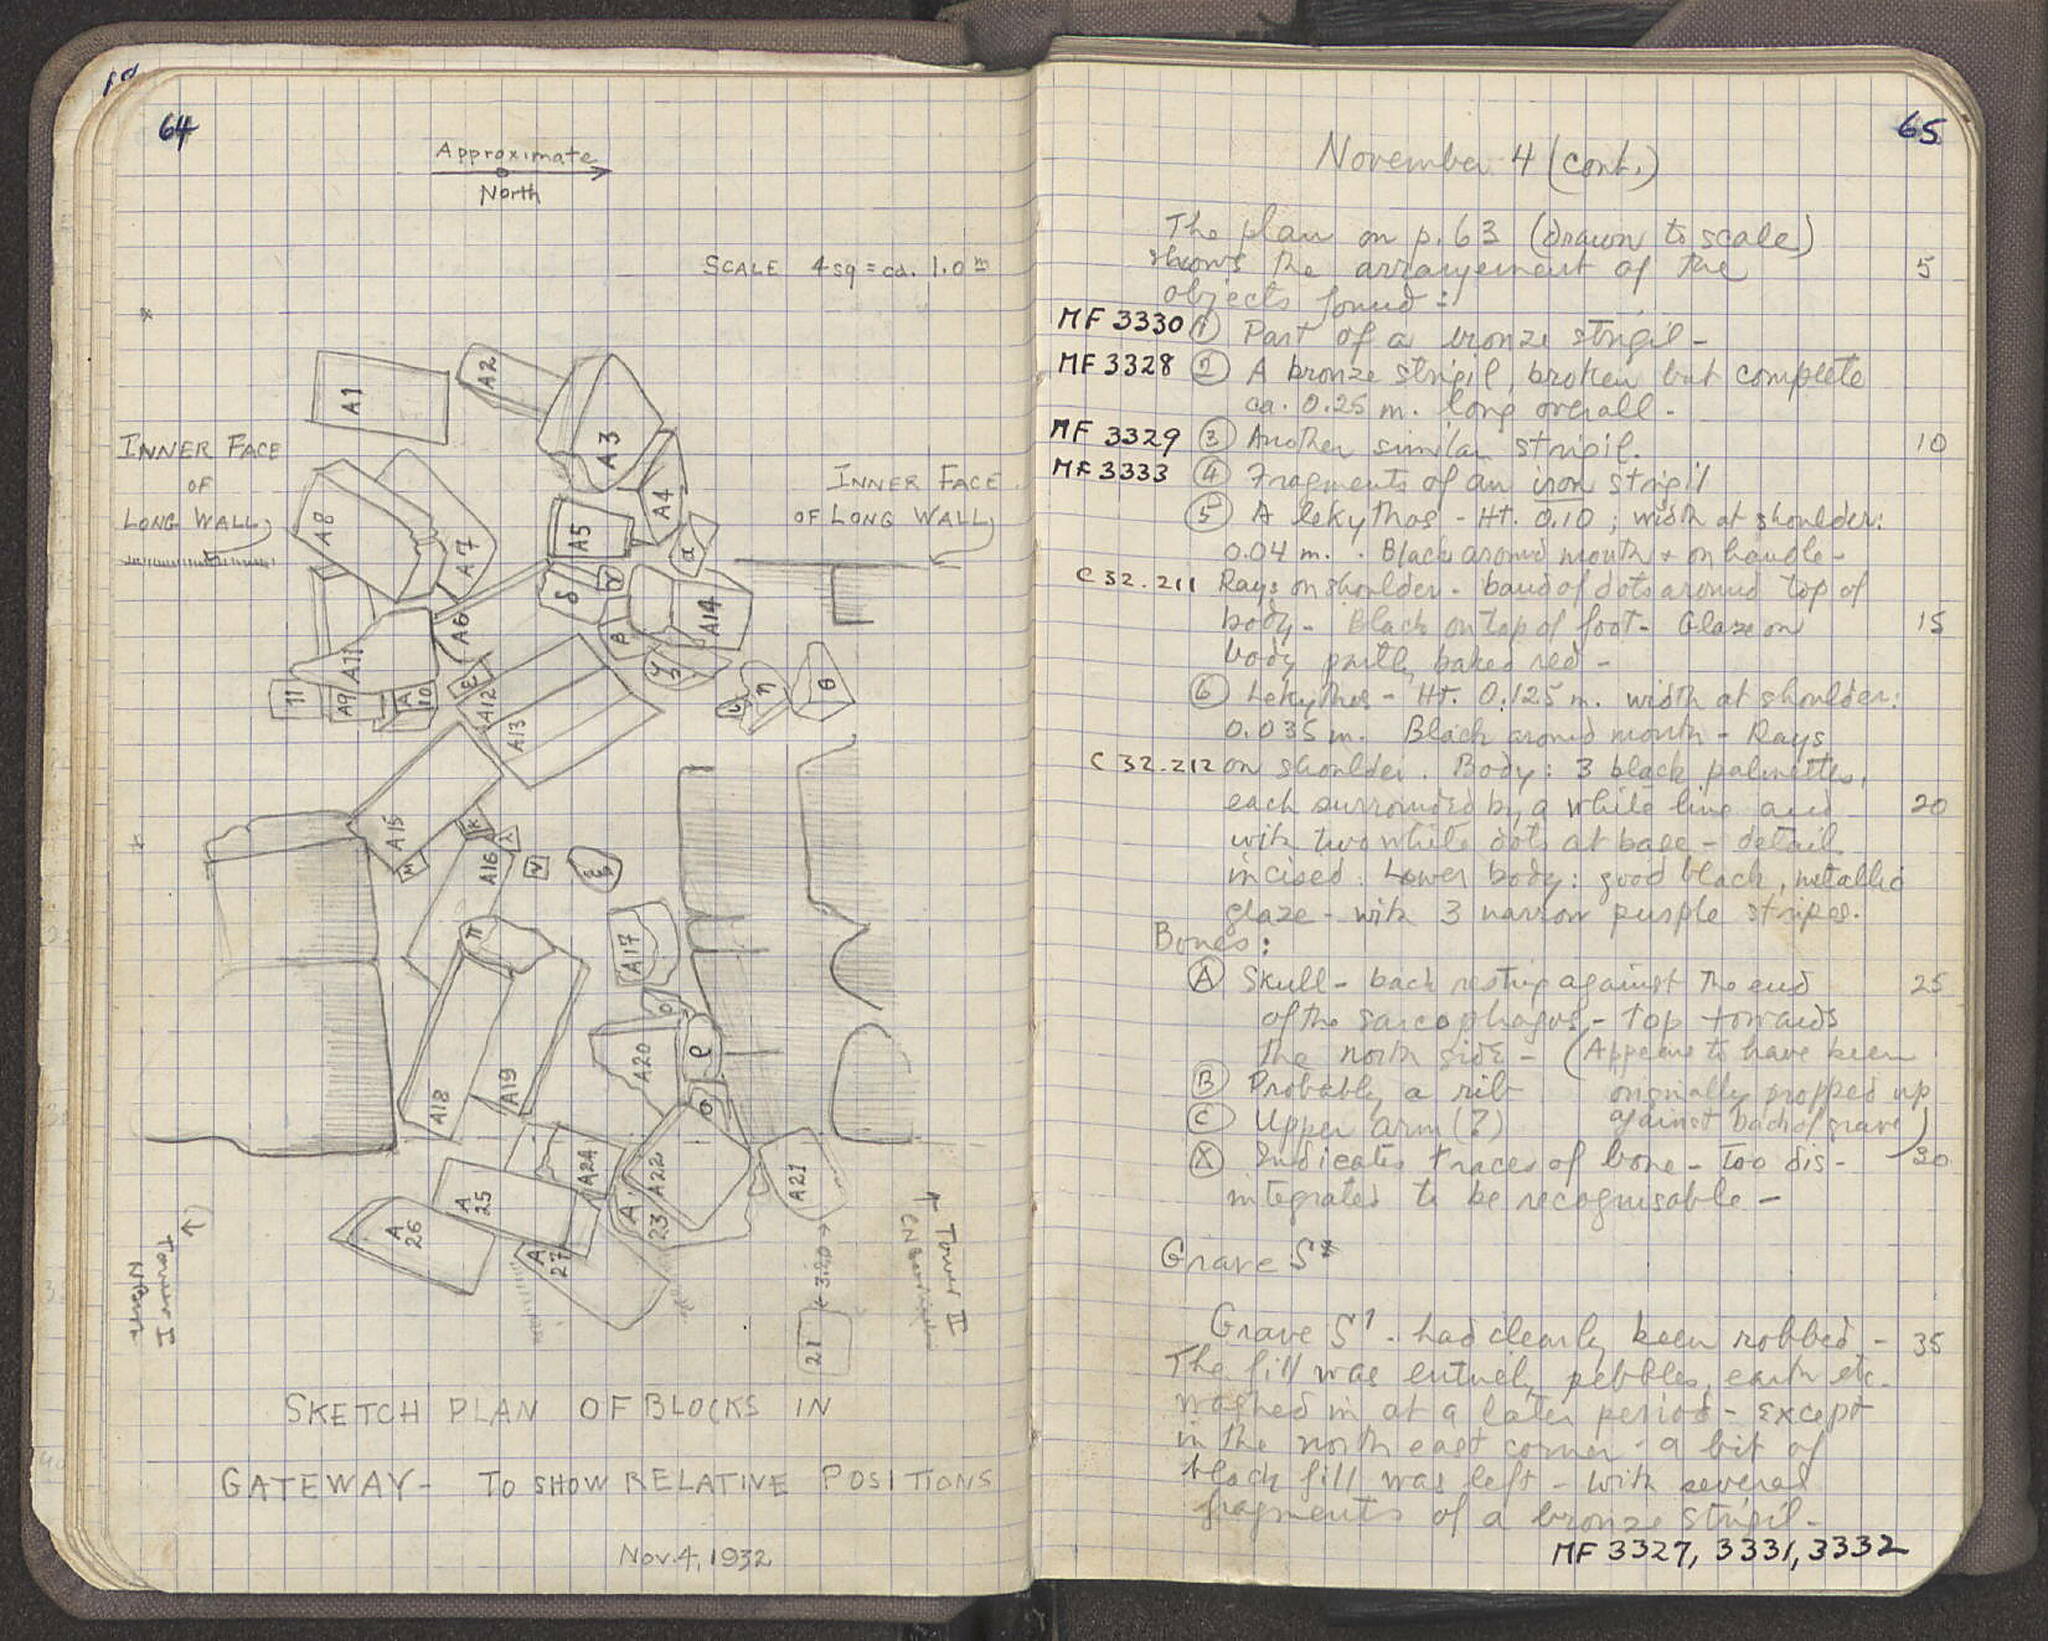 64
Approximate
North
SCALE 4 sq = ca. 1.0 m
INNER FACE
OF
LONG WALL
INNER FACE
OF LONG WALL
A1
A2
A3
A4
A5
A8
A7
α
δ
γ
β
A14
A6
A11
11
A9
A
10
ε
A12
A13
ζ
ι
η
θ
A15
M
K
λ
A16
N
ξ
π
A17
ο
A20
ρ
σ
A18
A19
A24
A22
A21
A
25
A
26
A
27
A
23
3.20
21
Tower I
North
Tower II
SKETCH PLAN OF BLOCKS IN
GATEWAY - TO SHOW RELATIVE POSITIONS
Nov. 4, 1932
65
November 4 (cont.)
The plan on p. 63 (drawn to scale)
shows the arrangement of the 5
objects found:
MF 3330 ① Part of a bronze strigil -
MF 3328 ② A bronze strigil, broken but complete
ca. 0.25 m. long overall -
MF 3329 ③ Another similar strigil. 10
MF 3333 ④ Fragments of an iron strigil
⑤ A lekythos - Ht. 0.10; width at shoulder:
0.04 m. . Black around mouth + on handle -
C 32.211 Rays on shoulder - band of dots around top of
body - Black on top of foot - Glaze on 15
body partly baked red -
⑥ Lekythos - Ht. 0.125 m. width at shoulder:
0.035 m. Black around mouth - Rays
C 32-212 on shoulder. Body: 3 black palmettes,
each surrounded by a white line and 20
with two white dots at base - detail
incised. Lower body: good black, metallic
glaze - with 3 narrow purple stripes.
Bones:
Ⓐ Skull - back resting against the end 25
of the sarcophagus - top towards
the north side - (Appears to have been
Ⓑ Probably a rib originally propped up
Ⓒ Upper arm (?) against back of grave)
Ⓧ Indicates traces of bone - too dis- 30
integrated to be recognisable -
Grave S
Grave S¹ - had clearly been robbed - 35
The fill was entirely pebbles, earth etc.
washed in at a later period - except
in the north east corner - a bit of
black fill was left - with several
fragments of a bronze strigil -
MF 3327, 3331, 3332